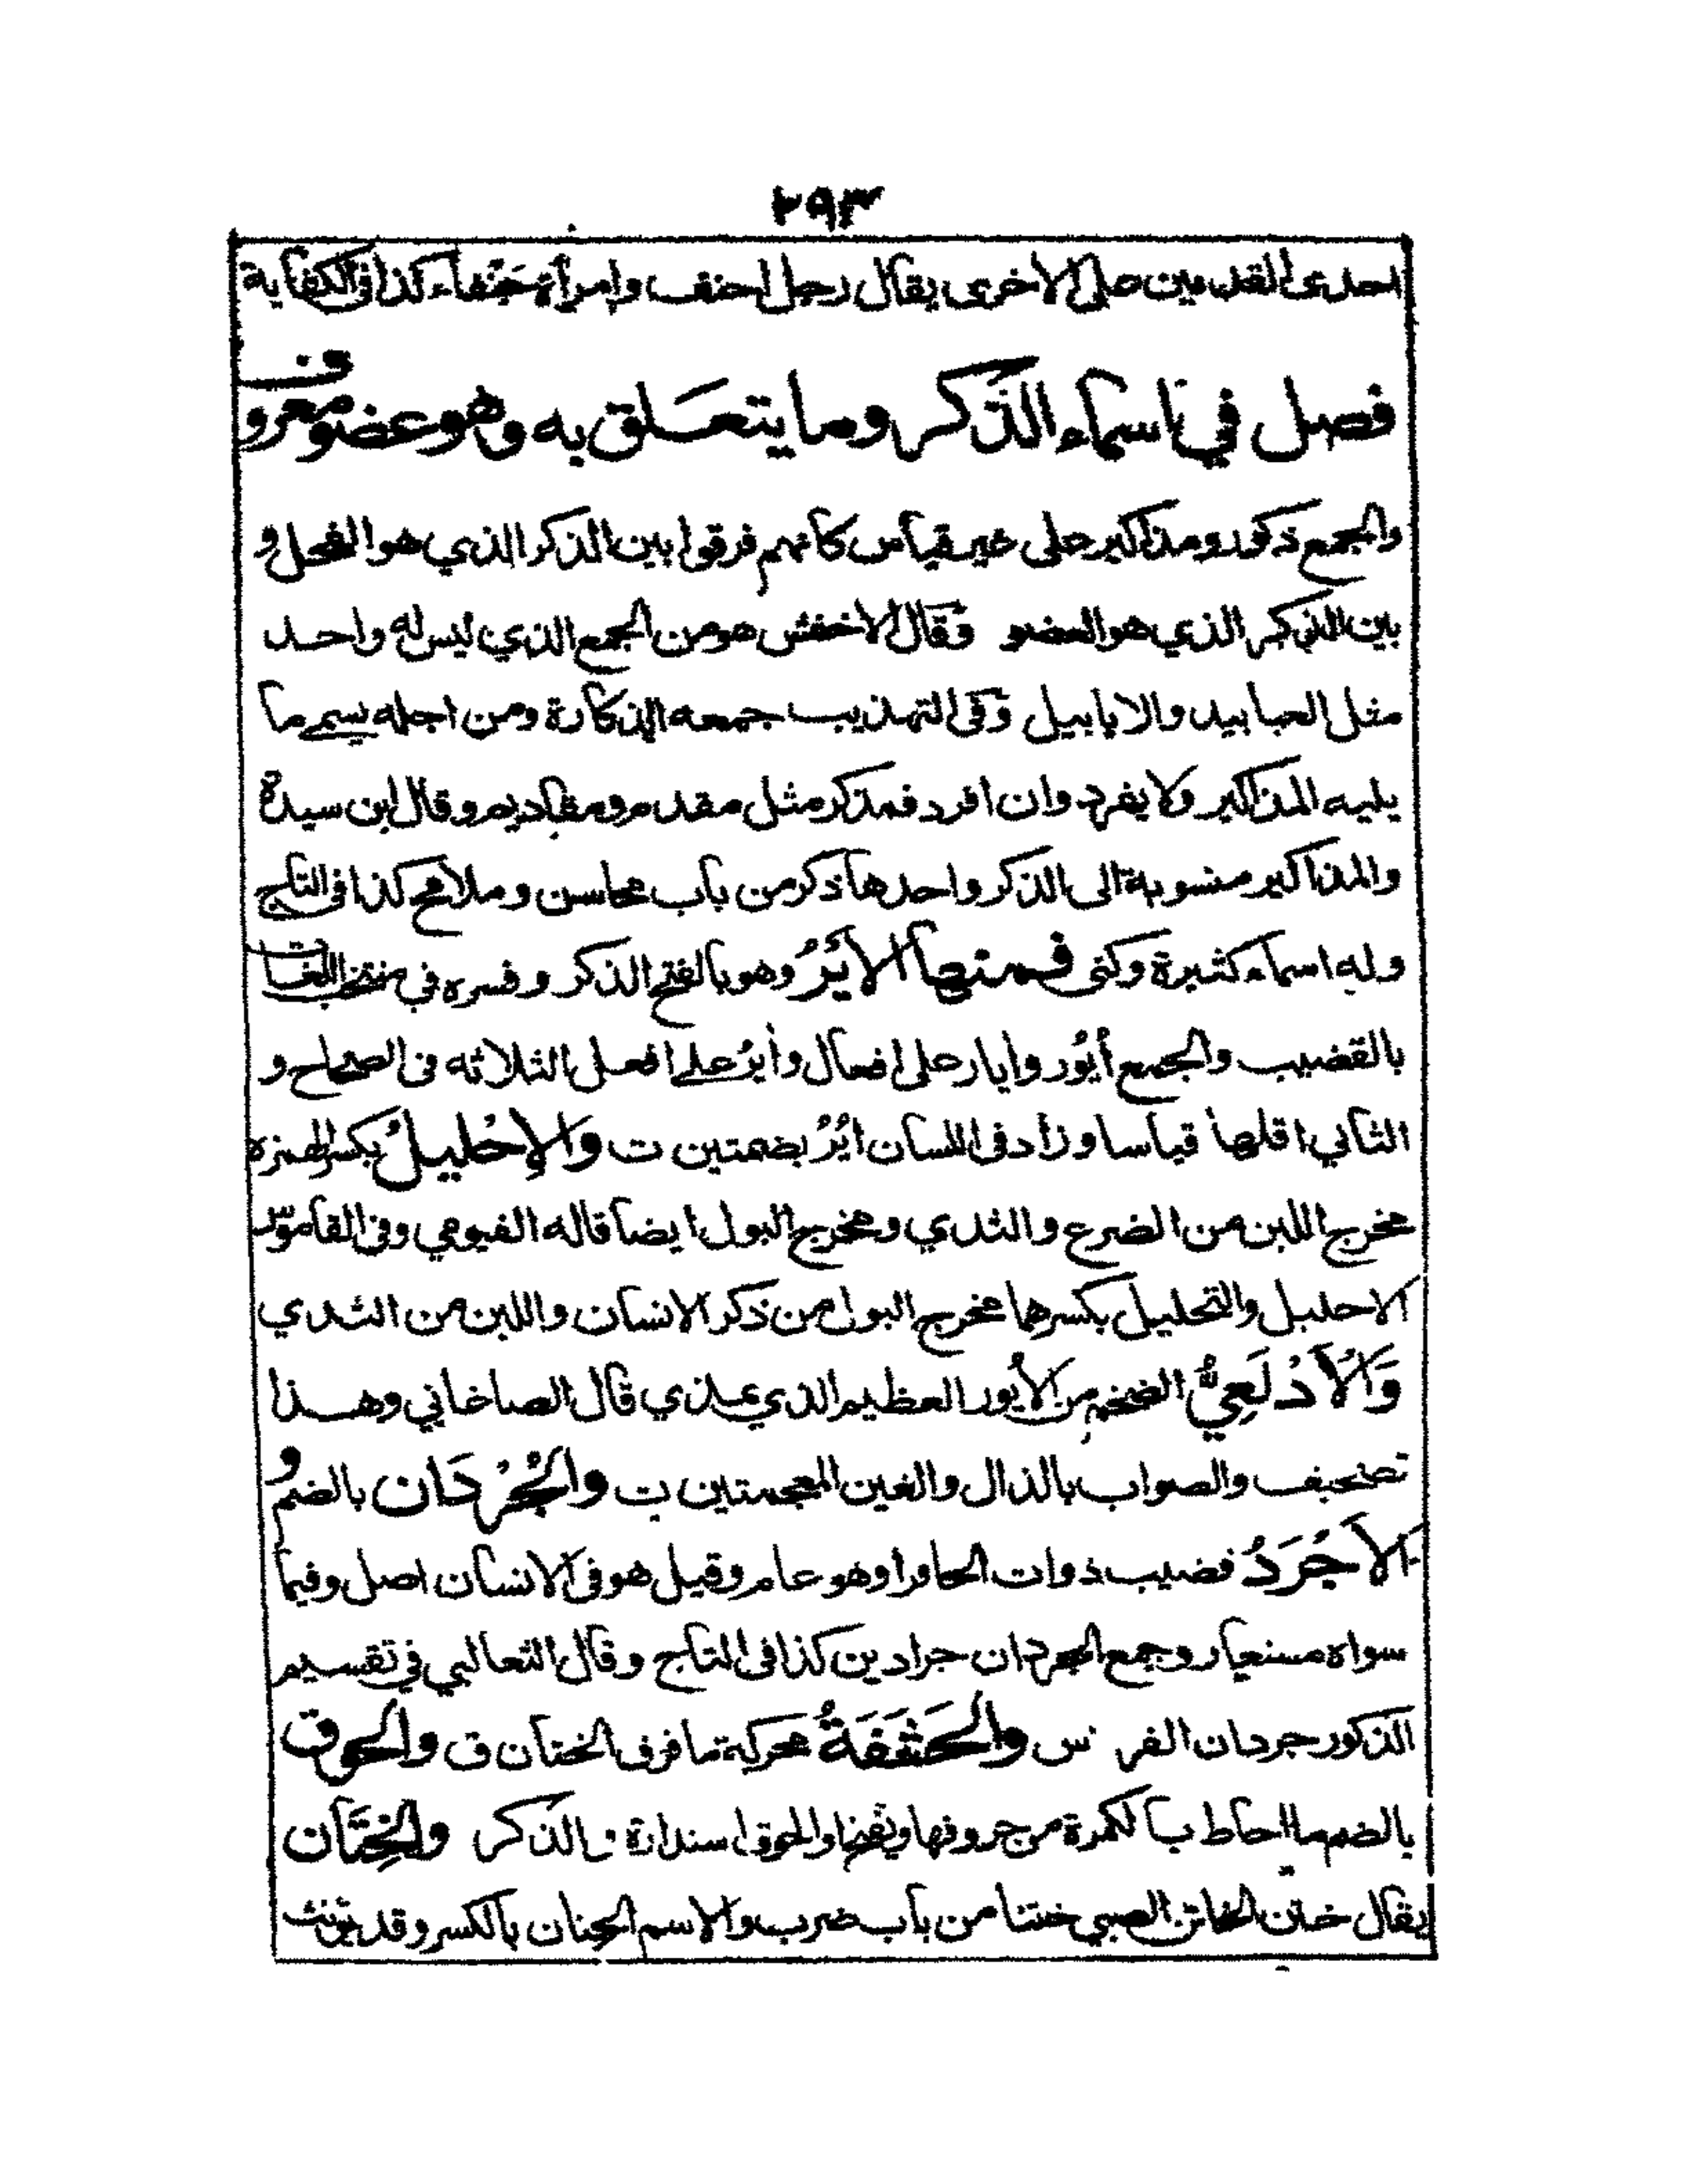 ٢٩٣
احدى القدمين على الاخرى يقال رجل احنف وامرأة حَنْفاء كذا فى الكفاية
فصل في اسماء الذَّكر وما يتعلق به وهو عضو معروف
والجمع ذكور ومذاكير على غير قياس كانهم فرقوا بين الذكر الذي هو الفحل و
بين الذكر الذي هو العضو وَقال الاخفش هو من الجمع الذي ليس له واحد
مثل العبابيد والابابيل وَفى التهذيب جمعه الذكارة ومن اجله يسمى ما
يليه المذاكير ولا يفرد وان افرد فمذكر مثل مقدم ومقاديم وقال ابن سيدة
والمذاكير منسوبة الى الذكر واحدها ذكر من باب محاسن وملامح كذا فى التاج
وله اسماء كثيرة وكنى فمنها الاَيْرُ وهو بالفتح الذكر وفسره في منتخب اللغات
بالقضيب والجمع أيُور وايار على افعال وايرُ على افعل الثلاثه فى الصحاح و
الثاني اقلها قياسا وزاد فى اللسان ايُرُ بضمتين ت وَالإحْليلُ بكسر الهمزه
مخرج اللبن من الضرع والثدي ومخرج البول ايضا قاله الفيومي وفى القاموس
الاحليل والتحليل بكسرهما مخرج البول من ذكر الانسان واللبن من الثدي
وَالْاَدْلَعِيُّ الضخم من الاُيور العظيم الذي يمذي قال الصاغاني وهذا
تصحيف والصواب بالذال والغين المعجمتين ت والجُرْدَان بالضم و
الاَجْرَدُ قضيب ذوات الحافر او هو عام وقيل هو فى الانسان اصل وفيما
سواه مستعار وجمع الجردان جرادين كذا فى التاج وقال الثعالبي في تقسيم
الذكور جردان الفرس والحَشَفَةُ محركة ما فوق الختان ق والحوق
بالضم ما احاط بالكمرة من حروفها ويفتح او الحوق استدارة بالذكر والخِتَان
يقال ختن الخاتن الصبي ختنا من باب ضرب والاسم الختان بالكسر وقد يؤنث